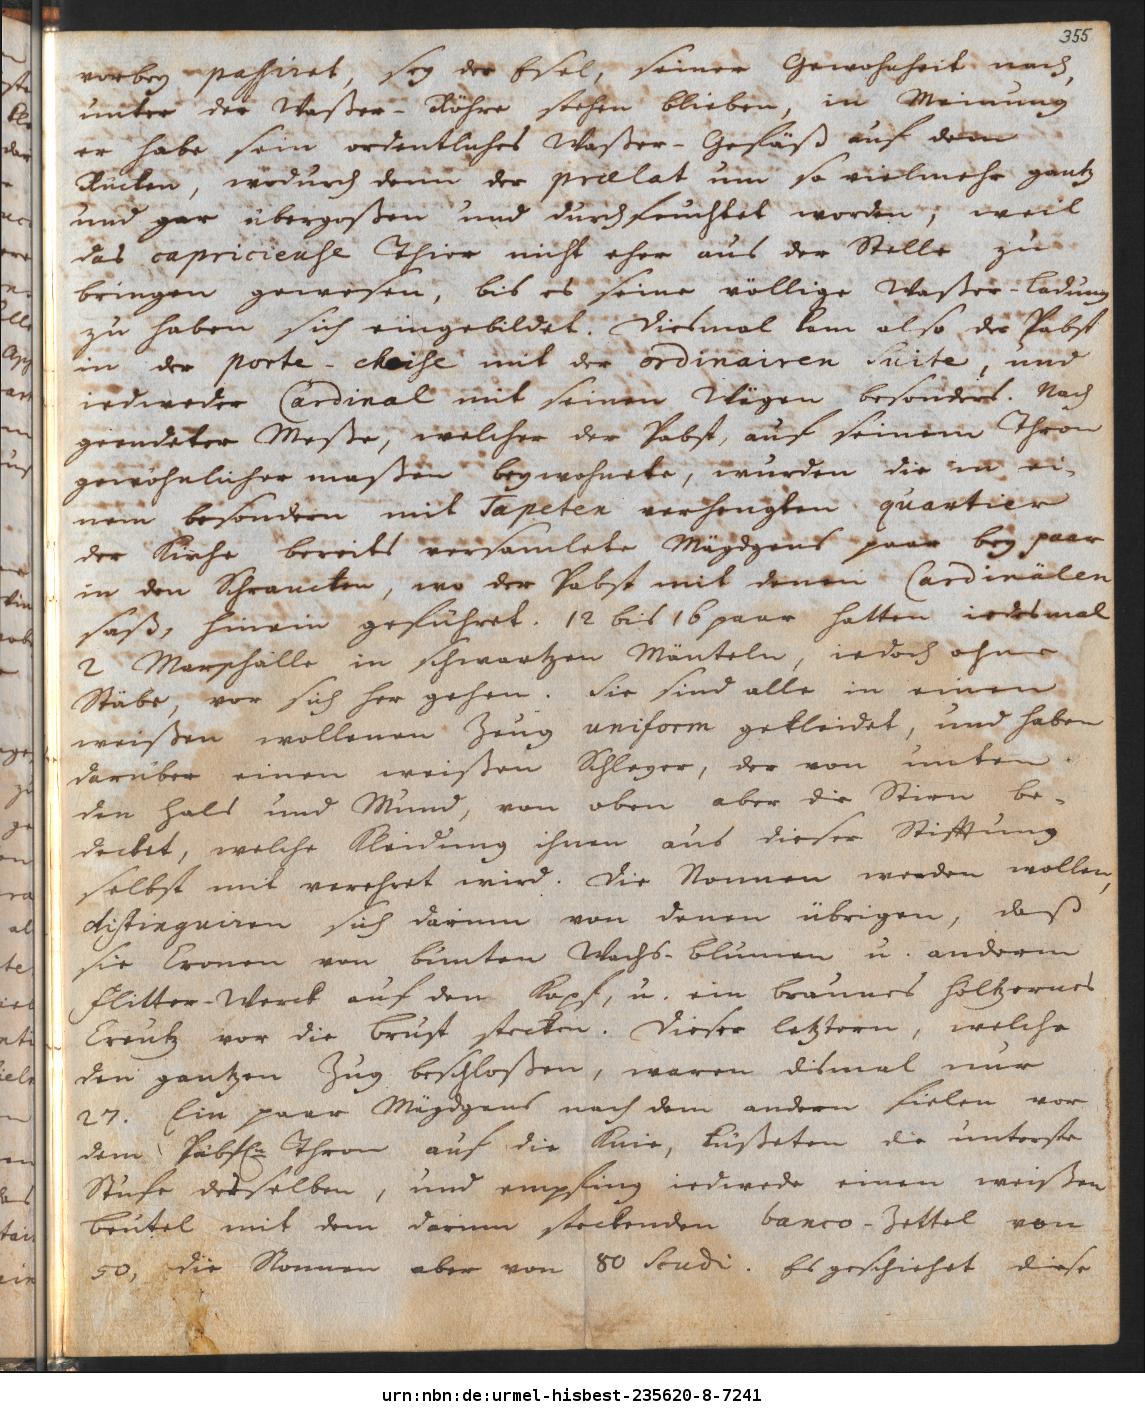 355
vorbey passiret, sey der Esel, seiner Gewohnheit nach,
unter der Waßer-Röhre stehen blieben, in Meinung
er habe sein ordentliches Waßer-Gefäß auf dem
Rücken, wodurch denn der prælat um so vielmehr gantz
und gar übergoßen und durchfeuchtet worden, weil
das capricieuse Thier nicht eher aus der Stelle zu
bringen gewesen, bis es seine völlige Waßer-Ladung
zu haben sich eingebildet. Diesmal kam also der Pabst
in der porte-chaise mit der ordinairen Suite, und
iedweder Cardinal mit seinen Wägen besonders. Nach
geendeter Meße, welcher der Pabst, auf seinem Thron
gewöhnlicher maßen beywohnete, wurden die in ei-
nem besondern mit Tapeten verhengten quartier
der Kirche bereits versamlete Mägdgens paar bey paar
in den Schrancken, wo der Pabst mit denen Cardinälen
saß, hinein geführet. 12 bis 16 paar hatten iedesmal
2 Marschälle in schwartzen Mänteln, iedoch ohne
Stäbe, vor sich her gehen. Sie sind alle in einen
weißen wollenen Zeug uniform gekleidet, und haben
darüber einen weißen Schleyer, der von unten
den Hals und Mund, von oben aber die Stirn be-
decket, welche Kleidung ihnen aus dieser Stifftung
selbst mit verehret wird. Die Nonnen werden wollen,
distinguiren sich darinn von denen übrigen, daß
sie Cronen von bunten Wachs-blumen u. anderm
Flitter-Werck auf den Kopf, u. ein braunes höltzernes
Creutz vor die Brust stecken. Dieser letztern, welche
den gantzen Zug beschloßen, waren dismal nur
27. Ein paar Mägdgens nach dem andern fielen vor
dem Päbstl. Thron auf die Knie, küßeten die unterste
Stufe deßelben, und empfing iedwede einen weißen
Beutel mit dem darinn steckenden banco-Zettel von
50, die Nonnen aber von 80 Scudi. Es geschiehet diese
urn:nbn:de:urmel-hisbest-235620-8-7241